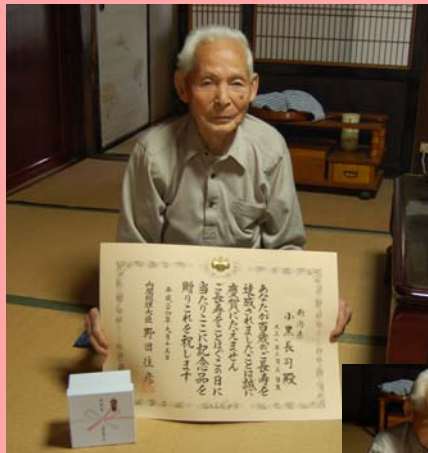 新潟県
小黒長司殿
あなたが百歳のご長寿を
達成されましたことは誠に
慶賀にたえません
ご長寿をことほぐこの日に
当たりここに記念品を
贈りこれを祝します
平成二十四年九月十五日
内閣総理大臣 野田佳彦